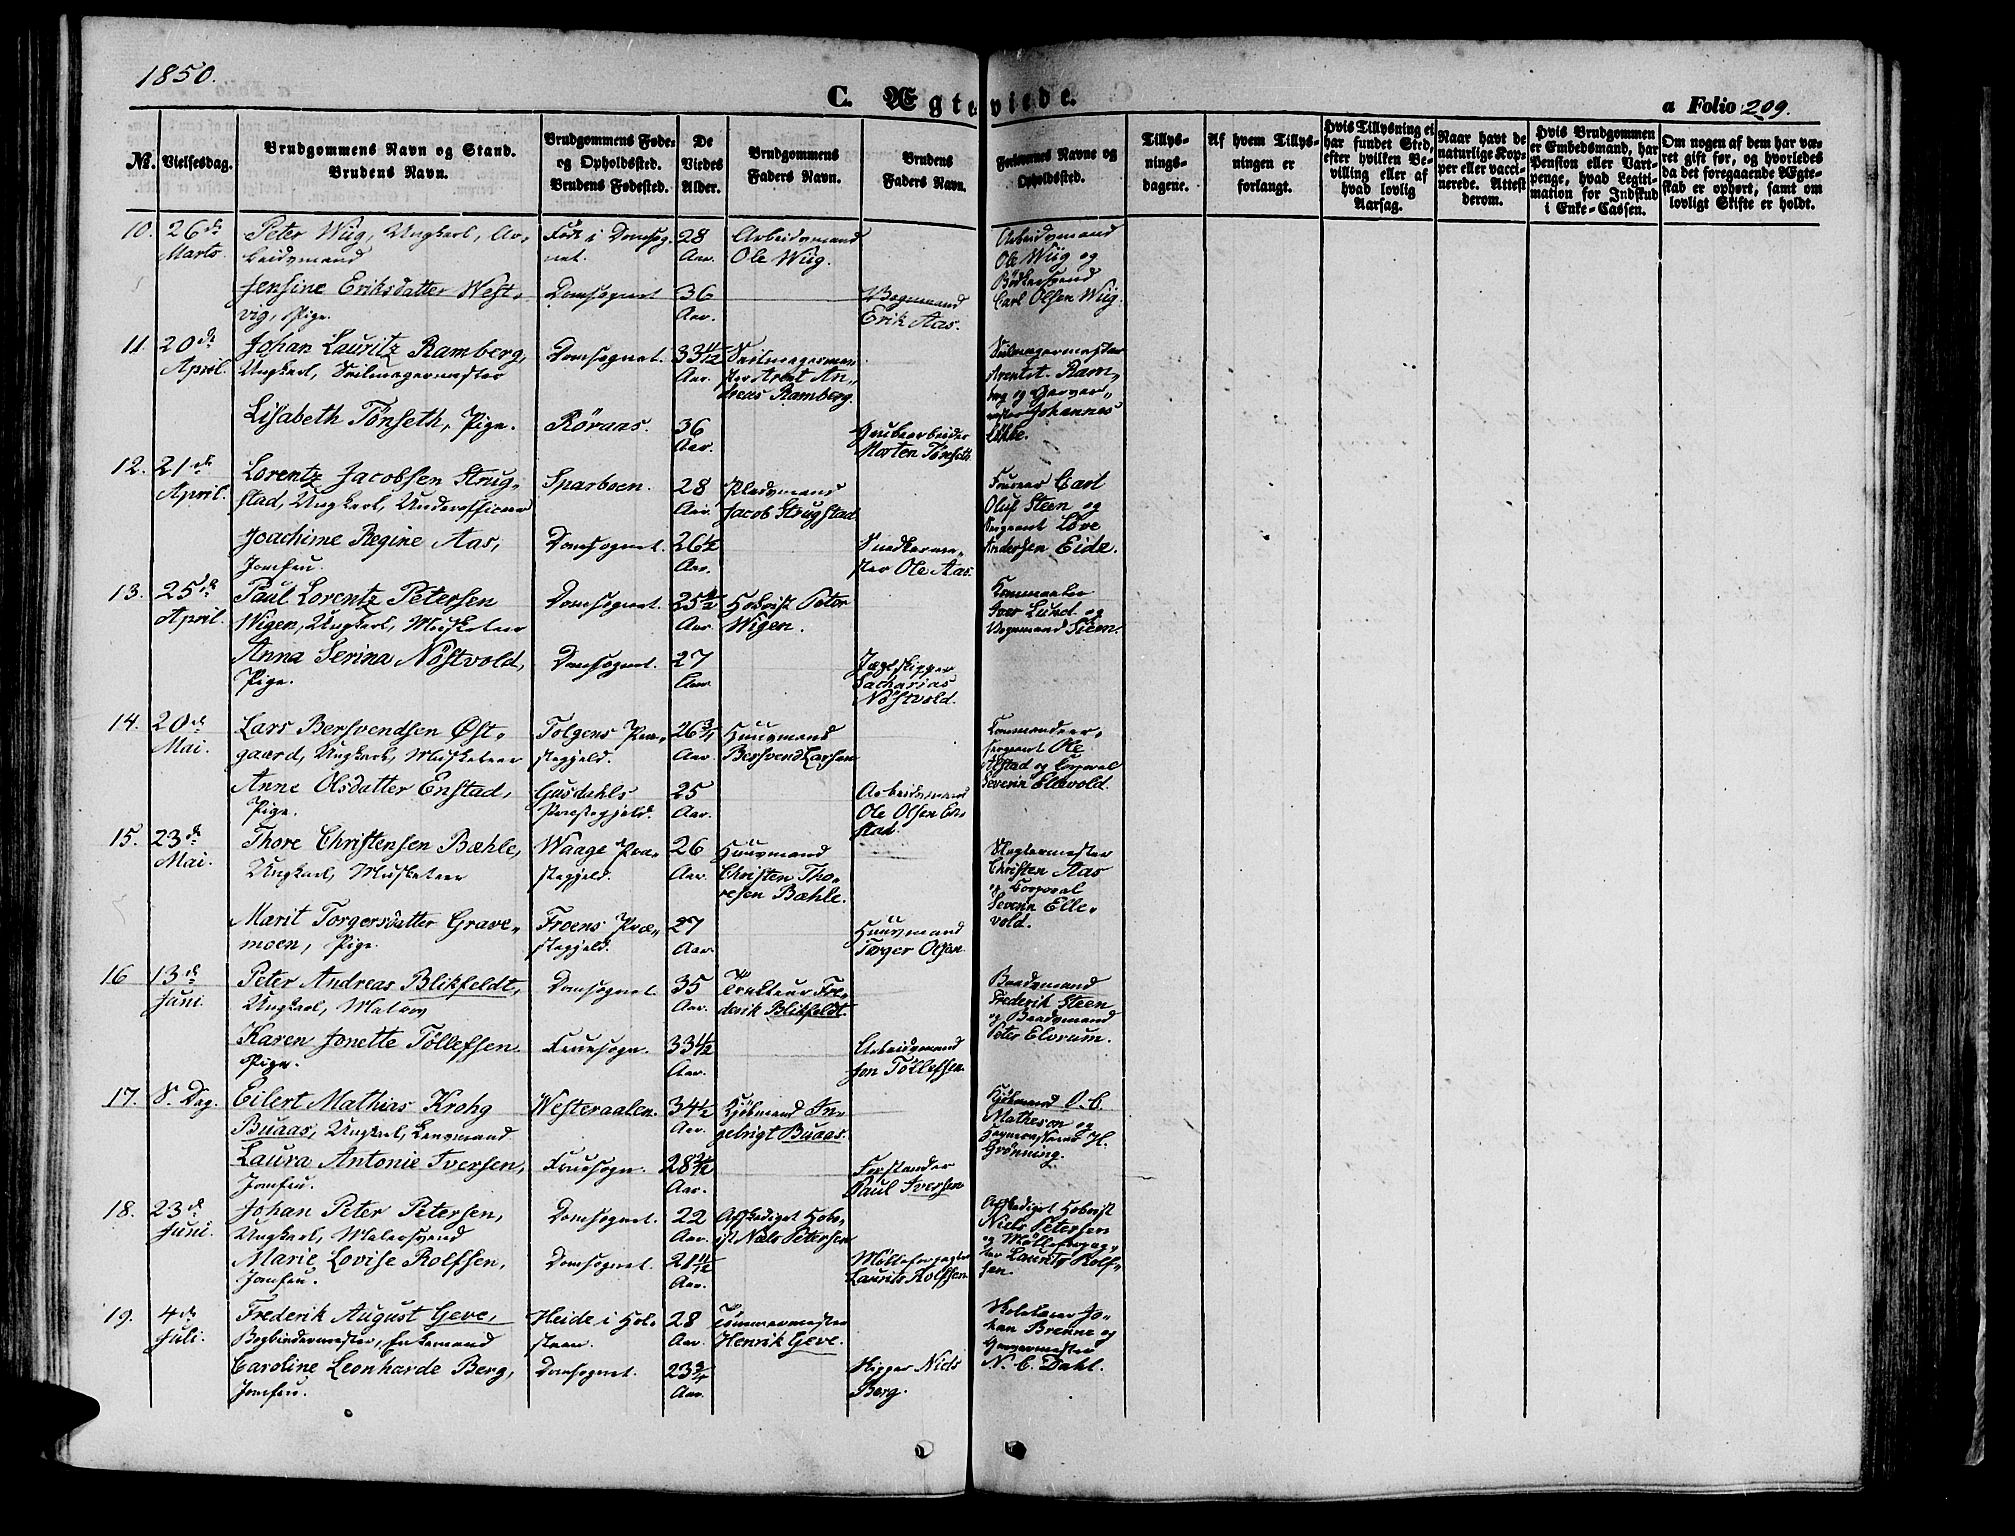 1850.
C. Ægteviede.
a Folio 209.
№.
Vielsesdag.
Brudgommens Navn og Stand.
Brudens Navn.
Brudgommens Føde-
og Opholdssted.
Brudens Fødested.
De
Viedes
Alder.
Brudgommens
Faders Navn.
Brudens
Faders Navn.
Forlovernes Navne og
Opholdssted.
Tillys-
nings-
dagene.
Af hvem Tillys-
ningen er
forlangt.
Hvis Tillysning ei
har fundet Sted,
efter hvilken Be-
villing eller af
hvad lovlig
Aarsag.
Naar havt de
naturlige Kop-
per eller vacci-
nerede. Attest
derom.
Hvis Brudgommen
er Embedsmand, har
Pension eller Vart-
penge, hvad Legiti-
mation for Indskud
i Enke-Cassen.
Om nogen af dem har væ-
ret gift før, og hvorledes
da det foregaaende Ægte-
skab er ophørt, samt om
lovligt Skifte er holdt.
10. 26de Marts.
Peter Wiig, Ungkarl, Ar-
beidsmand
Født i Domsog-
net.
28
Aar.
Arbeidsmand
Ole Wiig.
Arbeidsmand
Ole Wiig og
Bødkersvend
Carl Olsen Wiig.
Jensine Eriksdatter West-
vig, Pige.
Domsognet
36
Aar.
Erik Aas.
11. 20de April.
Johan Lauritz Ramberg,
Ungkarl, Seilmagermester
Domsognet.
33 1/2
Aar.
Seilmagermes-
ter Arent An-
dreas Ramberg.
Seilmagermester
Arent A. Ram-
berg og Garver-
mester Johannes
Lykke.
Lisabeth Tønseth, Pige.
Røraas.
36
Aar.
Grubearbeider
Morten Tønseth
12. 21de April.
Lorentz Jacobsen Strug-
stad, Ungkarl, Underofficeer
Sparboen.
28
Aar.
Pladsmand
Jacob Strugstad
Foureer Carl
Oluf Steen og
Sergeant Løve
Andersen Eide.
Joachime Regine Aas,
Jomfru.
Domsognet.
26 1/2
Aar.
Snedkerme-
ster Ole Aas.
13. 25de April.
Paul Lorentz Petersen
Wigen, Ungkarl, Musketeer
Domsognet.
25 1/2
Aar.
Hoboist Peter
Wigen.
Iver Lund og
Vognmand Siem.
Anna Serina Nøstvold,
Pige.
Domsognet.
27
Aar.
Jægtskipper
Zacharias
Nøstvold.
14. 20de Mai.
Lars Bersvendsen Øst-
gaard, Ungkarl, Musketeer
Tolgens Præ-
stegjeld.
26 3/4
Aar.
Huusmand
Bersvend Larsen
Commandeer-
sergeant Ole
Alstad og Corporal
Severin Ellevold.
Anne Olsdatter Enstad,
Pige.
Præstegjeld.
25
Aar.
Arbeidsmand
Ole Olsen En-
stad.
15. 23de Mai.
Thore Christensen Bæhle,
Ungkarl, Musketeer
Waage Præ-
stegjeld.
26
Aar.
Huusmand
Christen Tho-
resen Bæhle.
Slagtermester
Christen Aas
og Corporal
Severin Elle-
vold.
Marit Torgersdatter Grave-
moen, Pige.
Froens Præ-
stegjeld.
27
Aar.
Huusmand
Torger Olsen
16 13de Juni
Peter Andreas Blikfeldt,
Ungkarl, Matros
Domsognet
35
Aar.
Tracteur Fre-
derik Blikfeldt
Brandmand
Frederik Steen
og Brandmand
Peter Elvrum.
Karen Jonette Tøllefsen
Pige.
Fruesogn.
33 1/2
Aar.
Arbeidsmand
Jon Tøllefsen
17. S. Dag.
Eilert Mathias Krohg
Buaas, Ungkarl, Lensmand
Westeraalen.
34 1/2
Aar.
Kjøbmand In-
gebrigt Buaas.
Kjøbmand O. C.
Matheson og
H.
Grønning.
Laura Antonie Iversen,
Jomfru.
Fruesogn.
28 1/2
Aar.
Forstander
Paul Iversen
18. 23de Juni.
Johan Peter Petersen,
Ungkarl, Malersvend
Domsognet.
22
Aar.
Afskediget Hobo-
ist Niels Petersen
Afskediget Hoboist
Niels Petersen
og Mølleforpag-
ter Lauritz Rolf-
sen.
Marie Lovise Rolfsen,
Jomfru.
Domsognet.
21 1/2
Aar.
Mølleforpagter
Laurits Rolfsen
19. 4de Juli.
Frederik August Geve,
Bogbindermester, Enkemand
Heide i Hol-
steen.
28
Aar.
Tømmermester
Henrik Geve.
Skolelærer Jo-
han Brenne og
Garvermester
N. C. Dahl.
Caroline Leonharde Berg,
Jomfru.
Domsognet.
23 3/4
Aar.
Skipper Niels
Berg.